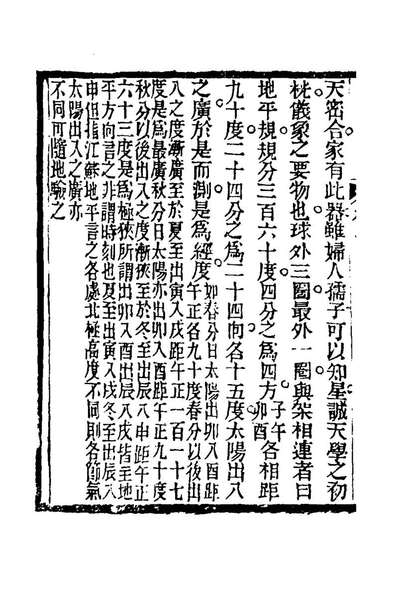 天密合家有此器雖婦人孺子可以知星誠天學之初
桄儀象之要物也球外三圈最外一圈與架相連者曰
地平規規分三百六十度四分之爲四方子午卯酉各相距
九十度二十四分之爲二十四向各十五度太陽出入
之廣於是而測是爲經度如春分日太陽出卯入酉距
午正各九十度春分以後出
入之度漸廣至於夏至出寅入戌距午正一百一十七
度是爲最廣秋分日太陽亦出卯入酉距午正九十度
秋分以後出入之度漸狹至於冬至出辰入申距午正
六十三度是爲極狹所謂出卯入酉出辰入戌皆指至地
平方向言之非謂時刻也夏至出寅入戌冬至出辰入
申但指江蘇地平言之各處北極高度不同則各節氣
太陽出入之廣亦
不同可隨地驗之